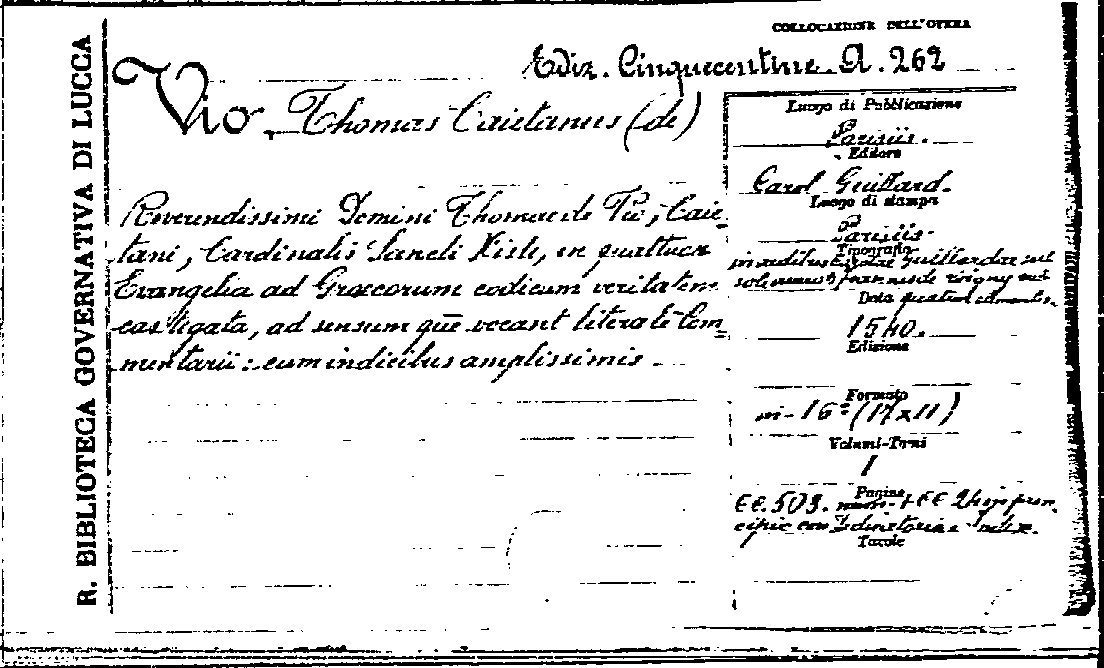 R. BIBLIOTECA GOVERNATIVA DI LUCCA
COLLOCAZIONE DELL'OPERA
Ediz. Cinquecentine A. 262
Vio, Thomas Caietanus (de)
Reverendissimi Domini Thomae de Vio, Caie_
tani, Cardinalis Sancti Xisti, in quattuor
Evangelia ad Graecorum codicum veritatem
castigata, ad sensum quē vocant literalē Com_
mentarii: cum indicibus amplissimis
Luogo di Pubblicazione
Parisiis.
Editore
Carol Guillard.
Luogo di stampa
Parisiis.
Tipografia
in aedibus Guillardae sub
sole aureo
Data
1540.
Edizione
Formato
in-16° (17x11)
Volumi-Tomi
1
Pagine
CC. 503. num. + CC 24 in prin_
cipio con Index.
Tavole